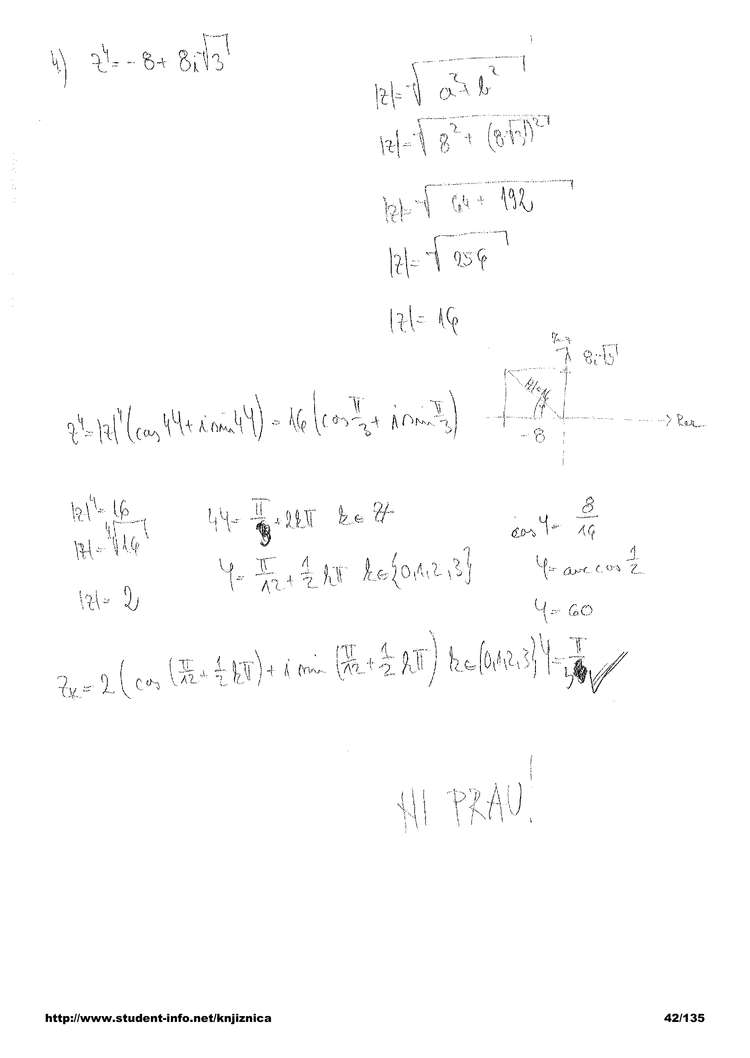 4) z⁴ = -8 + 8i√3
|z| = √(a² + b²)
|z| = √(8² + (8√3)²)
|z| = √(64 + 192)
|z| = √256
|z| = 16
8i√3
|z|=16
φ
-8
Rez
z⁴ = |z|⁴ (cos 4φ + i sin 4φ) = 16 (cos π/3 + i sin π/3)
|z|⁴ = 16
|z| = ⁴√16
|z| = 2
4φ = π/3 + 2kπ k ∈ Z
φ = π/12 + 1/2 kπ k ∈ {0,1,2,3}
cos φ = 8/16
φ = arc cos 1/2
φ = 60
φ = π/3
z_k = 2 (cos (π/12 + 1/2 kπ) + i sin (π/12 + 1/2 kπ)) k ∈ {0,1,2,3}
NI PRAV!
http://www.student-info.net/knjiznica 42/135